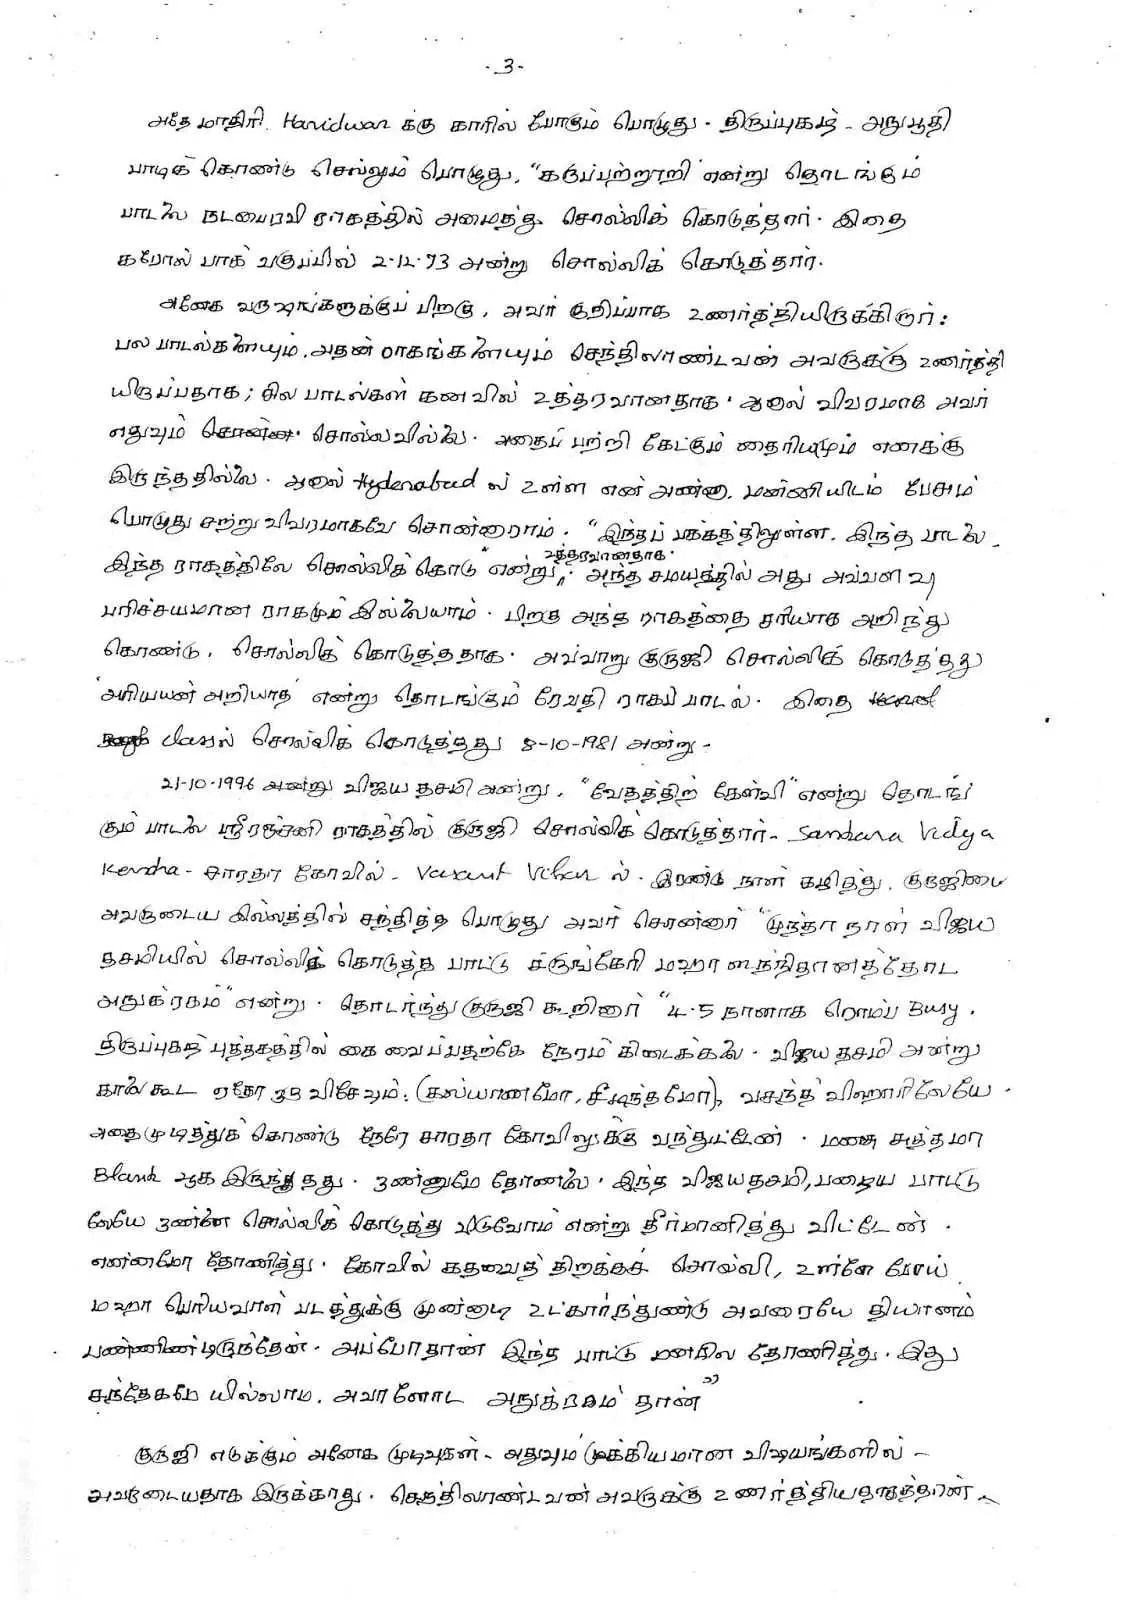 -3-
அதே மாதிரி Haridwar க்கு காரில் போகும் பொழுது - திருப்புகழ் - அநுபூதி
பாடிக் கொண்டு செல்லும் பொழுது, "கருப்பற்றூறி" என்று தொடங்கும்
பாடலை நடபைரவி ராகத்தில் அமைத்து சொல்லிக் கொடுத்தார். இதை
கபோல் பாக் வகுப்பில் 2-12-73 அன்று சொல்லிக் கொடுத்தார்.
அனேக வருஷங்களுக்குப் பிறகு, அவர் குறிப்பாக உணர்த்தியிருக்கிறார்:
பல பாடல்களையும், அதன் ராகங்களையும் செந்திலாண்டவன் அவருக்கு உணர்த்தி
யிருப்பதாக; சில பாடல்கள் கனவில் உத்தரவானதாக. ஆனால் விவரமாக அவர்
எதுவும் சொல்லவில்லை. அதைப் பற்றி கேட்கும் தைரியமும் எனக்கு
இருந்ததில்லை. ஆனால் Hyderabad ல் உள்ள என் அண்ணா, மன்னியிடம் பேசும்
பொழுது சற்று விவரமாகவே சொன்னாராம். "இந்தப் பக்கத்திலுள்ள, இந்த பாடலை
இந்த ராகத்திலே சொல்லிக் கொடு" என்று உத்தரவானதாக. அந்த சமயத்தில் அது அவ்வளவு
பரிச்சயமான ராகமும் இல்லையாம். பிறகு அந்த ராகத்தை சரியாக அறிந்து
கொண்டு, சொல்லிக் கொடுத்ததாக. அவ்வாறு குருஜி சொல்லிக் கொடுத்தது
'அரியயன் அறியாத' என்று தொடங்கும் ரேவதி ராகப் பாடல். இதை
classல் சொல்லிக் கொடுத்தது 8-10-1981 அன்று -
21-10-1996 அன்று விஜய தசமி அன்று, "வேதத்திற் கேள்வி" என்று தொடங்
கும் பாடலை ஸ்ரீரஞ்சனி ராகத்தில் குருஜி சொல்லிக் கொடுத்தார் - Sankara Vidya
Kendra - சாரதா கோவில் - Vasant Vihar ல். இரண்டு நாள் கழித்து, குருஜியை
அவருடைய இல்லத்தில் சந்தித்த பொழுது அவர் சொன்னார் "முந்தா நாள் விஜய
தசமியில் சொல்லிக் கொடுத்த பாட்டு ச்ருங்கேரி மஹா ஸந்நிதானத்தோட
அநுக்ரகம்" என்று. தொடர்ந்து குருஜி கூறினார் "4-5 நாளாக ரொம்ப Busy.
திருப்புகழ் புத்தகத்தில் கை வைப்பதற்கே நேரம் கிடைக்கலை. விஜய தசமி அன்று
காலை கூட ஏதோ ஒரு விசேஷம்: (கல்யாணமோ, சீமந்தமோ), வசந்த் விஹாரிலேயே.
அதை முடித்துக் கொண்டு நேரே சாரதா கோவிலுக்கு வந்துட்டேன். மனசு சுத்தமா
Blank ஆக இருந்தது. ஒண்ணுமே தோணலை. இந்த விஜயதசமி, பழைய பாட்டு
லேயே ஒண்ணை சொல்லிக் கொடுத்து விடுவோம் என்று தீர்மானித்து விட்டேன்.
என்னமோ தோணித்து. கோவில் கதவைத் திறக்கச் சொல்லி, உள்ளே போய்
மஹா பெரியவாள் படத்துக்கு முன்னாடி உட்கார்ந்துண்டு அவரையே தியானம்
பண்ணிண்டிருந்தேன். அப்போதான் இந்த பாட்டு மனசில தோணித்து. இது
சந்தேகமே யில்லாம, அவாளோட அநுக்ரகம் தான்"
குருஜி எடுக்கும் அனேக முடிவுகள் - அதுவும் முக்கியமான விஷயங்களில் -
அவருடையதாக இருக்காது. செந்திலாண்டவன் அவருக்கு உணர்த்தியதாகத்தான்